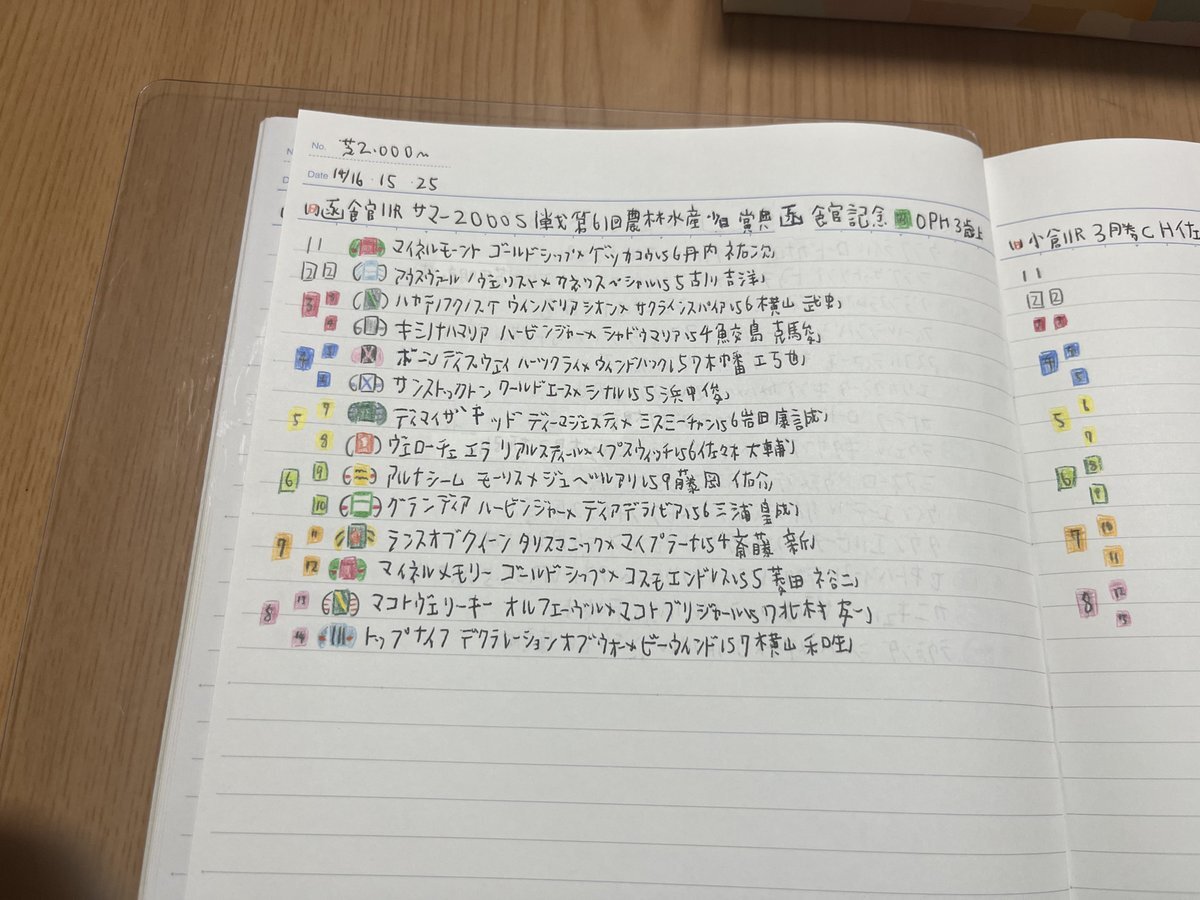 No. 芝2.000m
Date 14/16・15・25
日函館11R サマー2000S1戦第61回農林水産省賞典函館記念 OPH3歳上
1 1 マイネルモーント ゴールドシップ×ゲッカコウ56丹内祐次
2 2 アウスヴァール ノヴェリスト×カネツスペシャル55古川吉洋
3 3 ハヤテノフクノスケ ウインバリアシオン×サクラインスパイア56横山武史
4 キミノナハマリア ハービンジャー×シャドウマリア54鮫島克駿
4 5 ボーンディスウェイ ハーツクライ×ウィンドハック57木幡巧也
6 サンストックトン ワールドエース×シナル55浜中俊
5 7 ディマイザキッド ディーマジェスティ×ミスミーチャン56岩田康誠
8 ヴェローチェエラ リアルスティール×イプスウィッチ56佐々木大輔
6 9 アルナシーム モーリス×ジュベルアリ59藤岡佑介
10 グランディア ハービンジャー×ディアデラノビア56三浦皇成
7 11 ランスオブクイーン タリスマニック×マイプラーナ54斎藤新
12 マイネルメモリー ゴールドシップ×コスモエンドレス55菱田裕二
8 13 マコトヴェリーキー オルフェーヴル×マコトブリジャール57北村友一
14 トップナイフ デクラレーションオブウォー×ビーウインド57横山和生
日小倉11R 3月特CH佐
1 1
2 2
3 3
4 4
5
5 6
7
6 8
9
7 10
11
8 12
13